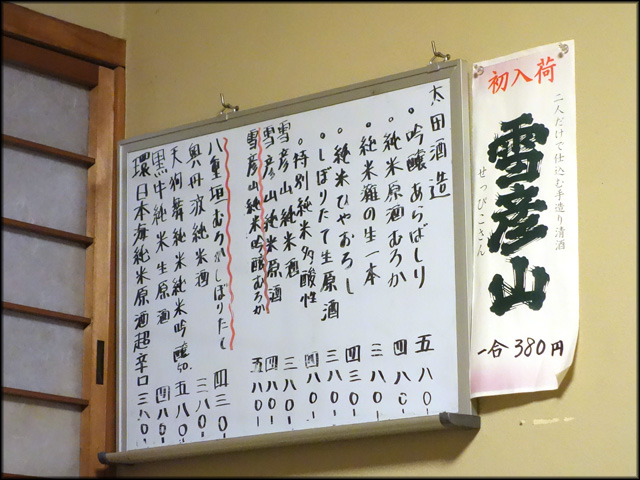 太田酒造
。吟醸あらばしり 五八〇ー
。純米原酒むろか 四八〇ー
。純米灘の生一本 三八〇ー
。純米ひやおろし 四三〇ー
。しぼりたて生原酒 三八〇ー
。特別純米多酸性 四八〇ー
雪彦山純米酒 三八〇ー
雪彦山純米原酒 四八〇ー
雪彦山純米吟醸むろか 五八〇ー
八重垣むろかしぼりたて 四三〇ー
奥丹波純米酒 三八〇ー
天狗舞純米純米吟醸50 五八〇ー
黒牛純米生原酒 四八〇ー
環日本海純米原酒超辛口 三八〇ー
初入荷
二人だけで仕込む手造り清酒
雪彦山
せっぴこさん
一合380円